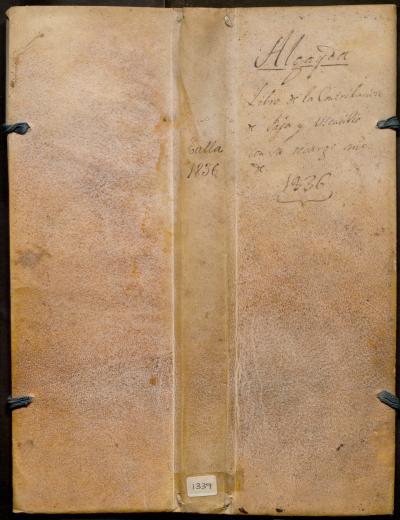 Algayda
Libro de la Contribucion
de Paja y Utencilio
con su recargo año
de
1836
Talla
1836
1339